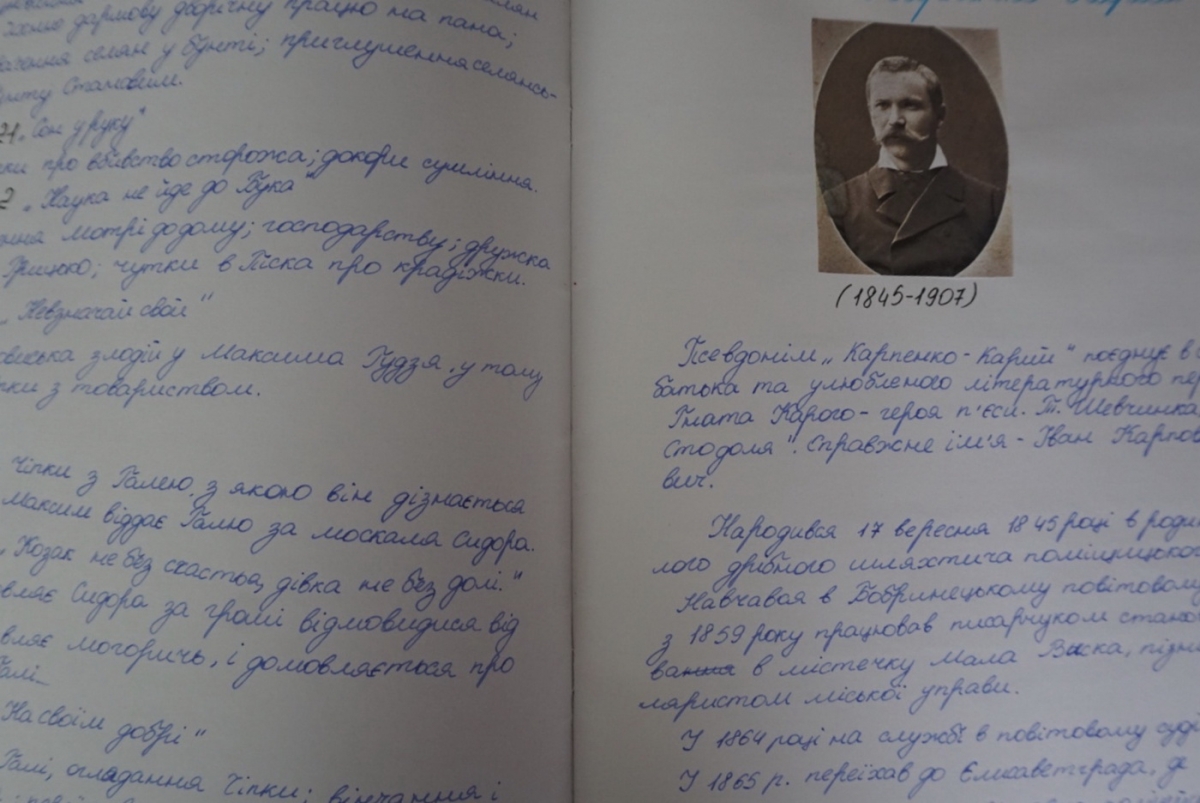 їхню дармову дворічну працю на пана;
селян у бунті; приглушення селянсь-
бунту Становим.
21 „Сон у руку"
про вбивство сторожа; докори сумління.
„Наука не йде до Бука"
Мотрі додому; господарству; дружка
Грицько; чутки в Піска про крадіжки.
„Невзначай свої"
злодій у Максима Гудзя, у тому
з товариством.
Чіпки з Галею, з якою він дізнається
Максим віддає Галю за москаля Сидора.
„Козак не без счастья, дівка не без долі."
Сидора за гроші відмовидися від
могорич, і домовляється про
Галі
На своїм добрі"
Галі, оглядання Чіпки; вінчання і
(1845-1907)
Псевдонім „Карпенко-Карий" поєднує в с
батька та улюбленого літературного пер
Гната Карого - героя п'єси. Т. Шевчинка
Стодоля". Справжнє ім'я - Іван Карпов
вич.
Народився 17 вересня 1845 році в роди
лого дрібного шляхтича поміщицької
Навчався в Бобринецькому повітовому
з 1859 року працював писарчуком стано
в містечку Мала Виска, пізні
ляристом міської управи.
У 1864 році на службі в повітовому суді
У 1865 р. переїхав до Єлисаветграда, де